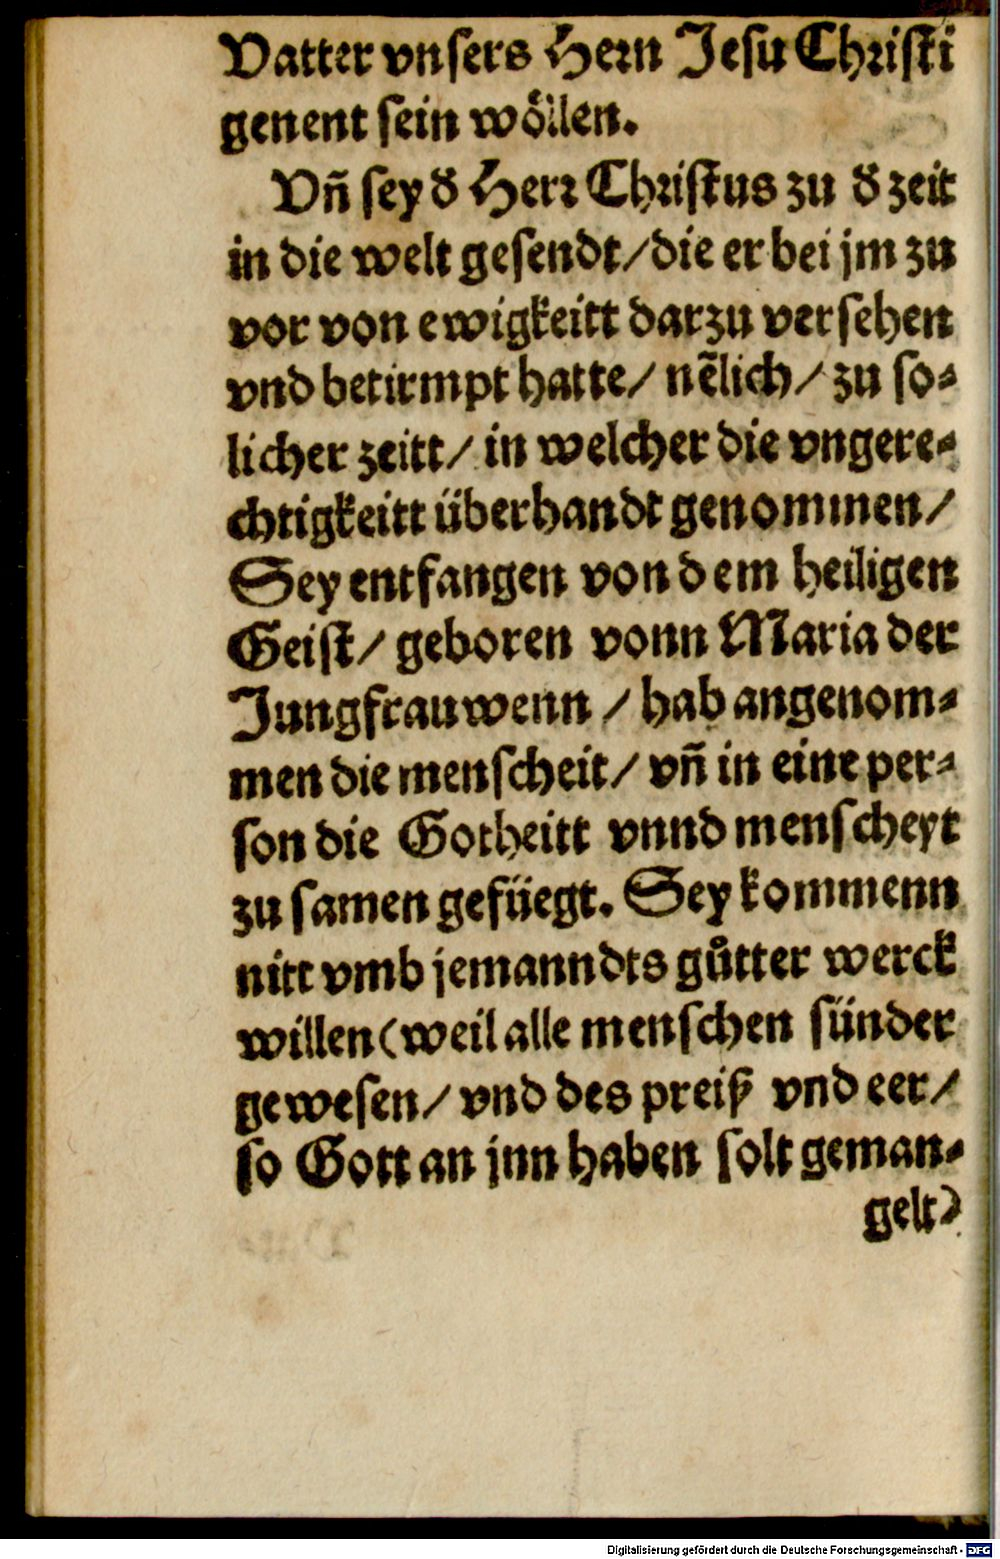 Vatter vnsers Hern Jesu Christi
genent sein wöllen.
Vñ sey d̕ Herr Christus zu d̕ zeit
in die welt gesendt/die er bei jm zu
vor von ewigkeitt darzu versehen
vnd betirmpt hatte/ nẽlich/ zu so⸗
licher zeitt/ in welcher die vngere⸗
chtigkeitt überhandt genommen/
Sey entfangen von dem heiligen
Geist/ geboren vonn Maria der
Jungfrauwenn / hab angenom⸗
men die menscheit/ vñ in eine per⸗
son die Gotheitt vnnd menscheyt
zu samen gefüegt. Sey kommenn
nitt vmb jemanndts gůtter werck
willen (weil alle menschen sünder
gewesen/ vnd des preiß vnd eer/
so Gott an jnn haben solt geman⸗
gelt)
Digitalisierung gefördert durch die Deutsche Forschungsgemeinschaft - DFG